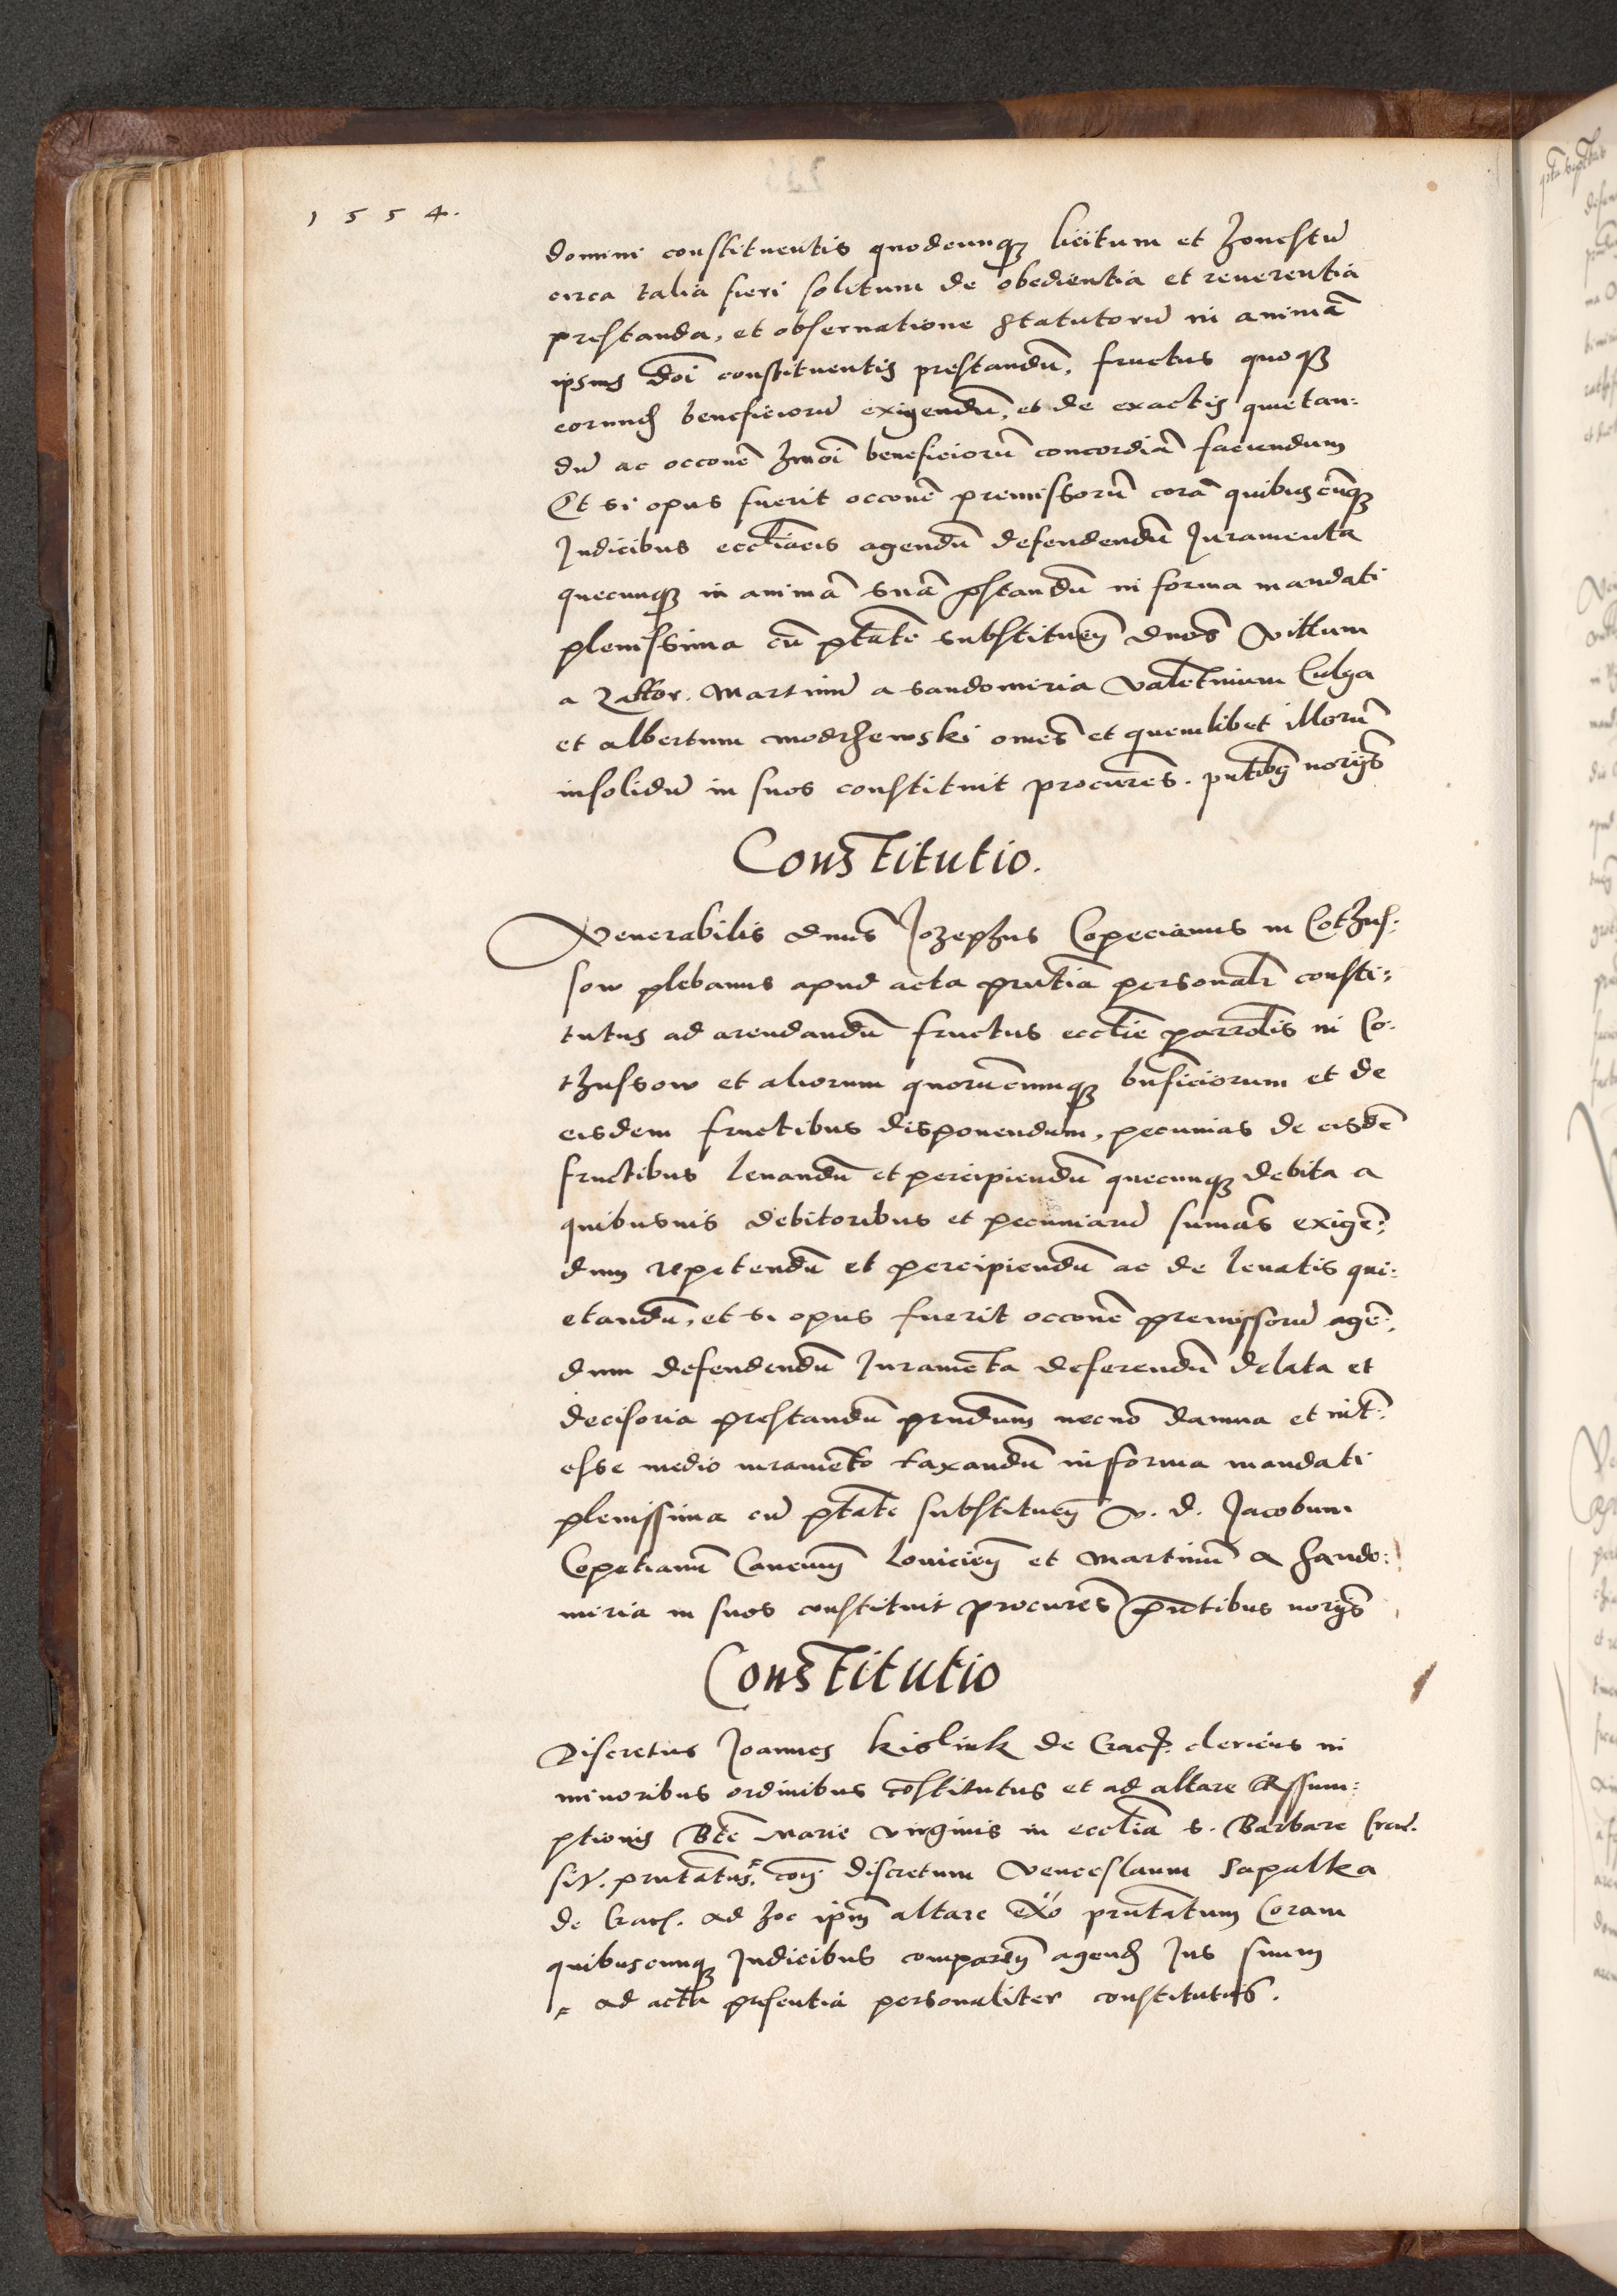 1554.
domini constituentis quodcunq₃ licitum et honestū
circa talia fieri solitum de obedientia et reuerentia
prestanda, et obseruatione statutorū in animā
ipsius dōi constituentis prestandū, fructus quoq₃
eorund beneficiorū exigendū, et de exactis quietan:
dū ac occonē hmōi beneficiorū concordiā faciendum
Et si opus fuerit occonē premissorū corā quibuscūq₃
Judicibus eccliācis agendū defendendū Juramenta
quecunq₃ in animā suā pstandū in forma mandati
plenissima cū ptāte substituen dnōs Vittum
a Zattor. Martinū a sandomiria Valētinum Culga
et albertum modrzewski omēs et quemlibet illorū
insolidū in suos constituit procurēs. pntibs norijs
Constitutio.
Venerabilis dnus Jozephus Copecianus in Cothus:
sow plebanus apud acta prntia personalr consti:
tutus ad arendandū fructus ecclie parrolis in Co:
thussow et aliorum quorūcunq₃ bnficiorum et de
eisdem fructibus disponendum, pecunias de eisdē
fructibus leuandū et percipiendū quecunq₃ debita a
quibusuis debitoribus et pecuniarū sumās exigē:
dum repetendū et percipiendū ac de leuatis qui:
etandū, et si opus fuerit occonē premissorū agē:
dum defendendū Juramēta deferendū delata et
decisoria prestandū prndum necnō damna et int:
esse medio iuramēto taxandū in forma mandati
plenissima cū ptāte substituen v. d. Jacobum
Copetianū Cancum louicien et Martinū a sando:
miria in suos constituit procurēs prntibus norijs
Constitutio
Discretus Joannes kislink de Crac. clericus in
minoribus ordinibus cōstitutus et ad altare Assum:
ptionis Bte Marie virginis in ecclia s. Barbare Crac.
sit. prntatus, con discretum Venceslaum Sapalka
de Crac. ad hoc ipm altare exō prntatum Coram
quibuscunq₃ Judicibus comparen agend Jus suum
ad acta presentia personaliter constitutus.